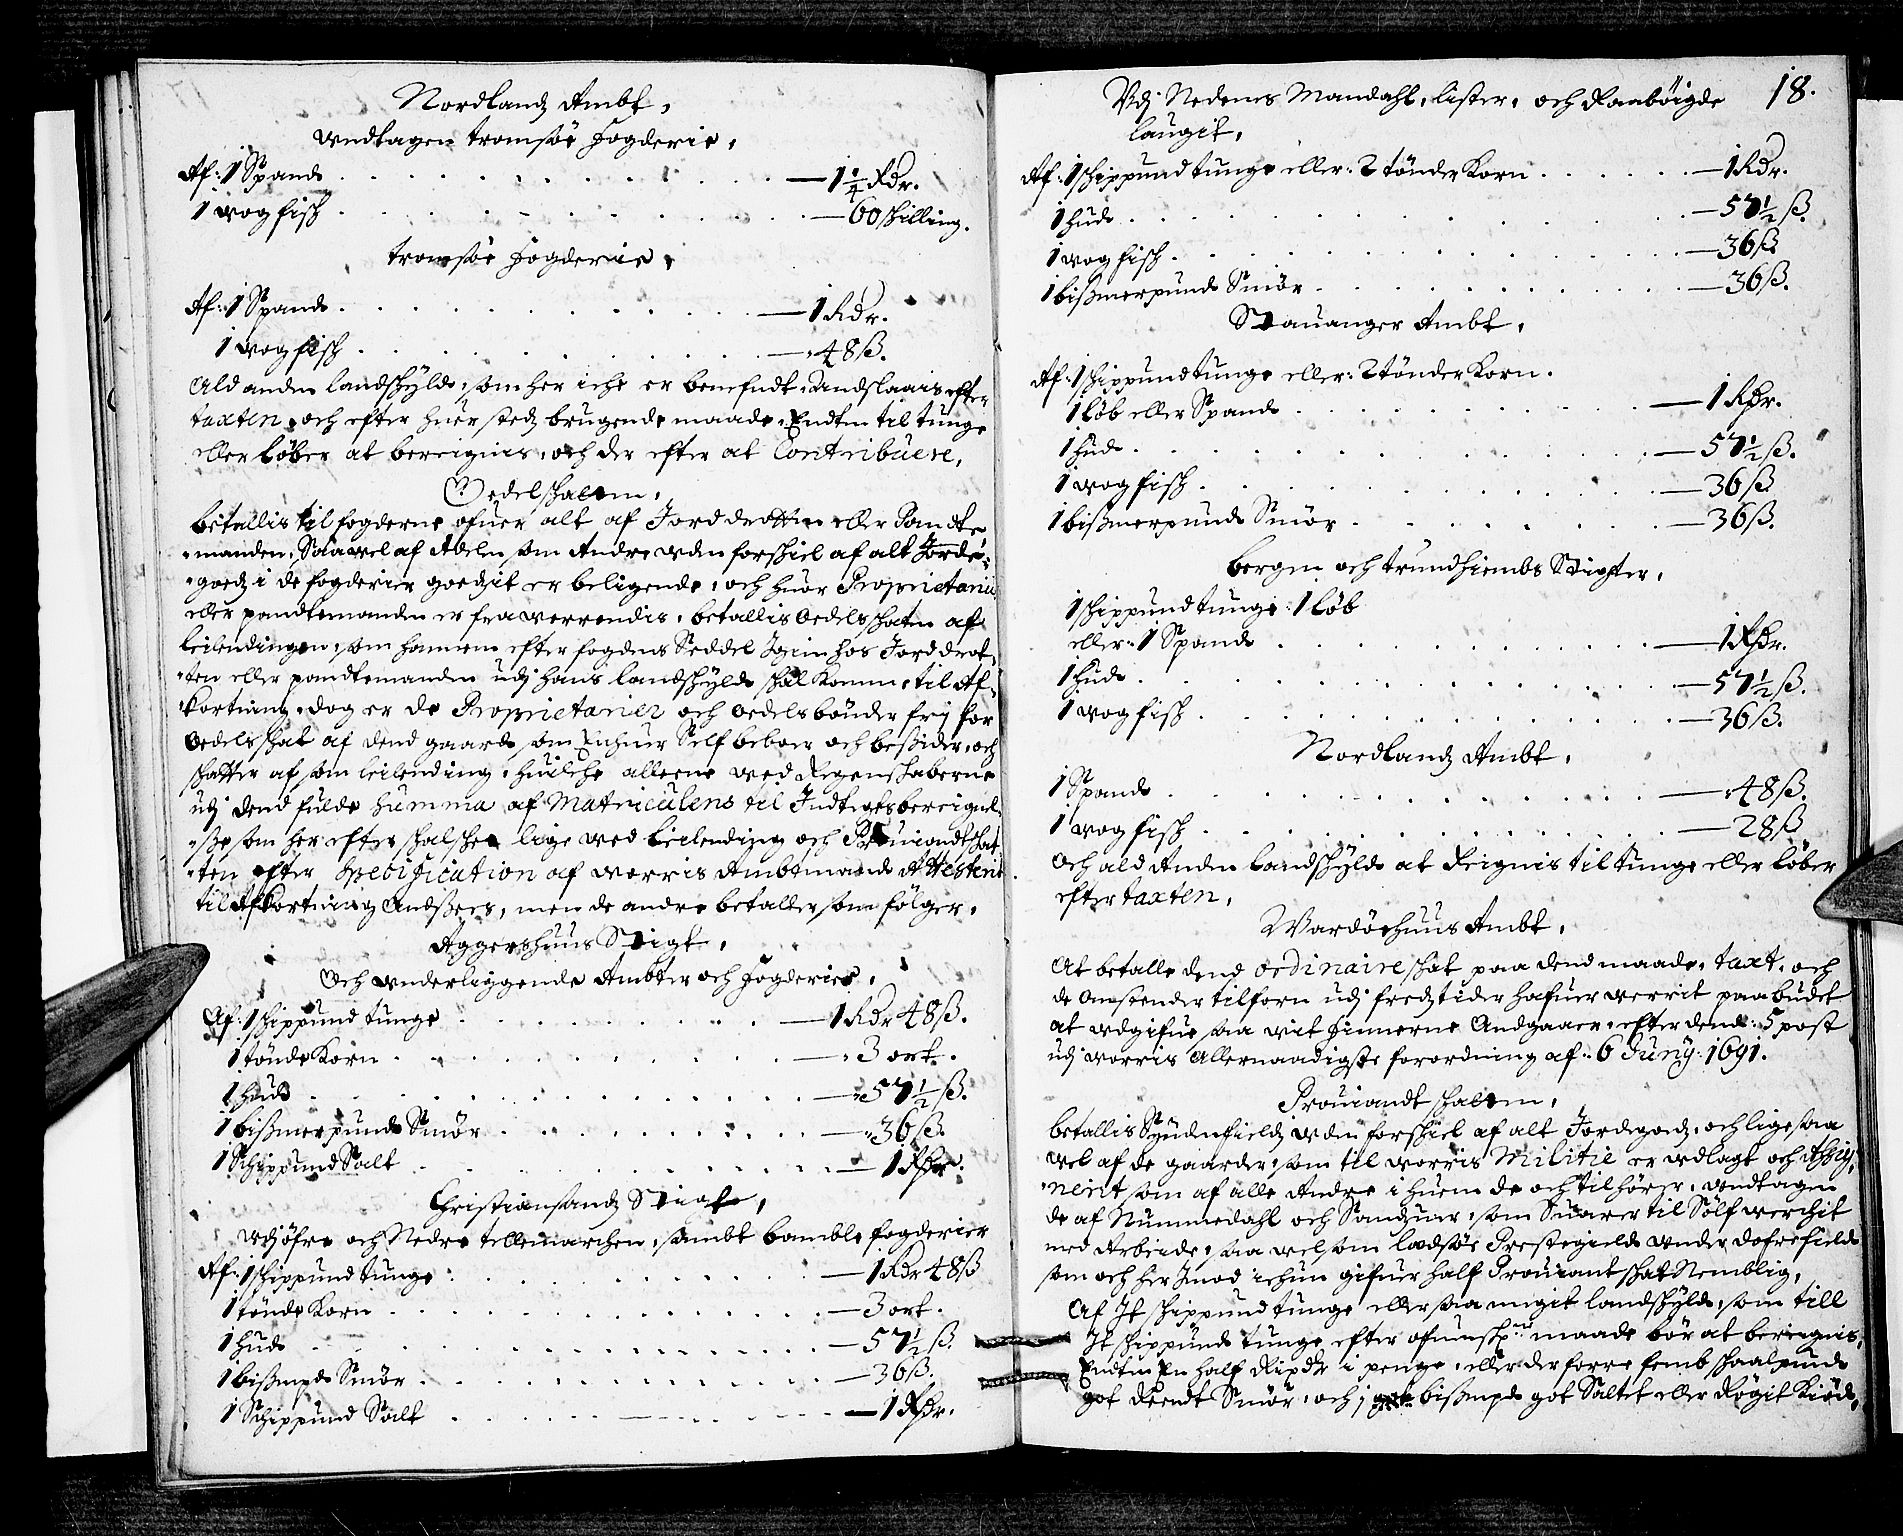 Nordlandz Ambt,
vndtagen tromsöe Fogderie,
Af: 1 Spands - 1 1/4 Rdr.
1 vog fisch - 60 skilling.
tromsöe Fogderie,
Af: 1 Spands - 1 Rdr.
1 vog fisch - 48 ß.
Ald anden landschyld, som her iche er benefndt, Andslaais effter
taxten, och efter huer stedz brugende maade, Endten til tunge
eller Løber at bereignis, och der efter at Contribuere,
Oedelschatten,
betallis til fogderne ofuer alt af Jorddrotten eller Pandte-
manden, Saavel af Adelen som Andre uden forschiel af alt Jorde-
goedz i de fogderier goedzit er beligende, och huor Proprietarii
eller pandtemanden er fraværrendis, betallis Oedelsschatten af
Leilendingen, som hannem efter fogdens Seddel Igien hos Jorddrot-
ten eller pandtemanden udj hans landschyld schal komme til Af-
kortning. dog er de Proprietarier och Oedelsbönder frij for
Oedelsschat af dend gaard, som Enhuer Self beboer och besider, och
schatter af som leilending, huilche alleene ved Regenschaberne
udj dend fulde summa af Matriculens til Indtegtsbereignel-
sse som her efter schal schee lige ved Leilending och Prouiandtschat-
ten efter Specification af vorris Ambtmands Attesterit
til Afkortning Andssees, men de andre betaller som følger.
Aggershuus Stigt,
Och vnderliggende Ambter och Fogderier,
Af: 1 schippund tunge - 1 Rdr 48 ß.
1 tönde Korn - 3 ort.
1 hud - 57 1/2 ß.
1 bißmerpunds Smör - 36 ß.
1 Schippund Salt - 1 Rdr.
Christiansandz Stigt,
Udj öfre och Nedre tellemarchen, sambt bamble fogderier
Af: 1 schippund tunge - 1 Rdr 48 ß
1 tönde Korn - 3 ort.
1 hud - 57 1/2 ß.
1 bißmpd Smör - 36 ß.
1 Schippund Salt - 1 Rdr.
18.
Udj Nedenes Mandahl, lister, och Raaböigde
laugit,
Af: 1 schippund tunge eller: 2 tönder Korn - 1 Rdr.
1 hud - 57 1/2 ß.
1 vog fisch - 36 ß
1 bißmerpunds Smör - 36 ß.
Stauanger Ambt,
Af: 1 schippund tunge eller: 2 tönder Korn.
1 Løb eller Spands - 1 Rdr.
1 hud - 57 1/2 ß.
1 vog fisch - 36 ß
1 bißmerpunds Smör - 36 ß.
bergen och trundhiembs Stigter,
1 schippund tunge: 1 Løb
eller: 1 Spands - 1 Rdr.
1 hud - 57 1/2 ß.
1 vog fisch - 36 ß.
Nordlandz Ambt,
1 Spands - 48 ß.
1 vog fisch - 28 ß
Och ald Anden Landschyld at Reignis til tunge eller Løber
efter taxten,
Wardöehuus Ambt,
At betalle dend ordinaire schat paa dend maade, taxt, och
de Omstender tilforn udj fredztider hafuer verrit paabudet
at udgifue, saa vit Finnerne Andgaaer, efter dend 5 post
udj vorris Allernaadigste forordning af: 6 Junÿ: 1691.
Prouiandt schatten,
betallis Syndenfieldz uden forschiel af alt Jordegoedz, och ligesaa
vel af de gaarder, som til vorris Militie er udlagt och Assig-
nerit som af alle Andre i huem de och tilhører, undtagen
de af Nummedahl och Sandzuer, som Suarer til Sølfverchit
med Arbeide, saa vel som Lædsöe Prestegield under dofrefield
som och her Imod ichun gifuer half Prouiantschat Nemblig,
Af It schippund tunge eller saa megit landschyld, som till
It schippund tunge efter ofuenschr: maade bør at bereignis,
Endten En half Rixdr i penge, eller der forre femb schaalpund
got Reendt Smör, och 1 bißmpd got Saltet eller Røgit Kiöd,